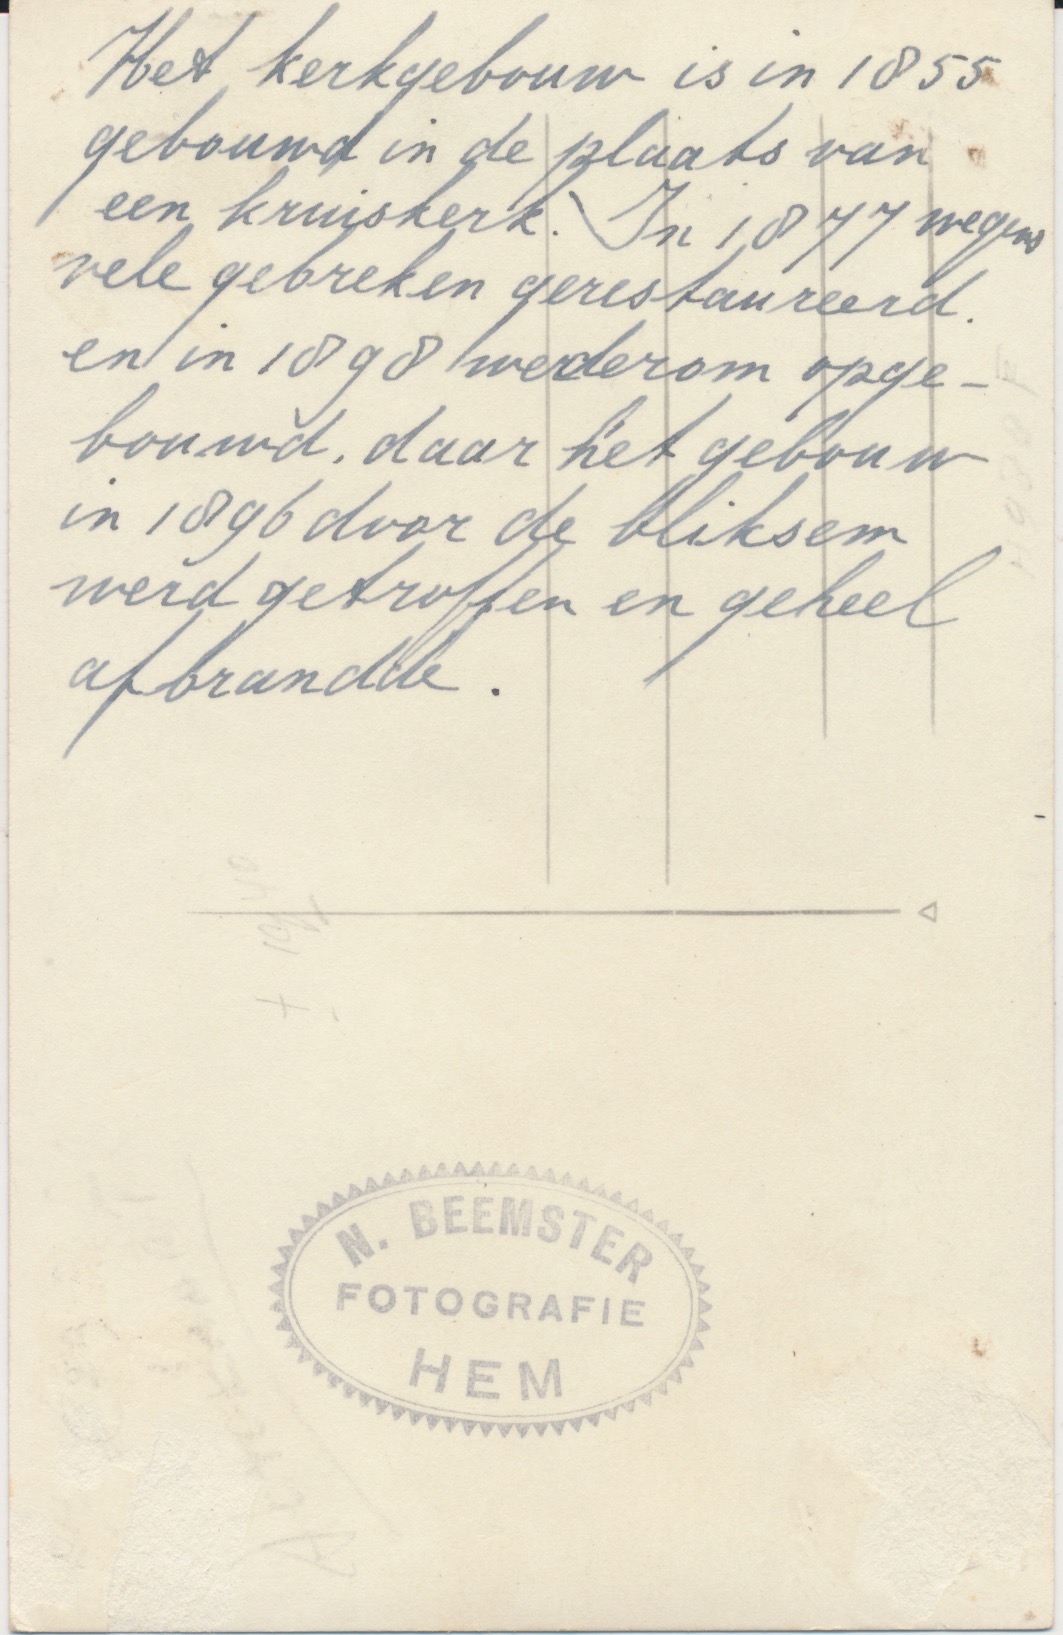 Het kerkgebouw is in 1855
gebouwd in de plaats van
een kruiskerk. In 1877 wegens
vele gebreken gerestaureerd.
en in 1898 wederom opge-
bouwd, daar het gebouw
in 1896 door de bliksem
werd getroffen en geheel
afbrandde.
± 1940
N. BEEMSTER
FOTOGRAFIE
HEM